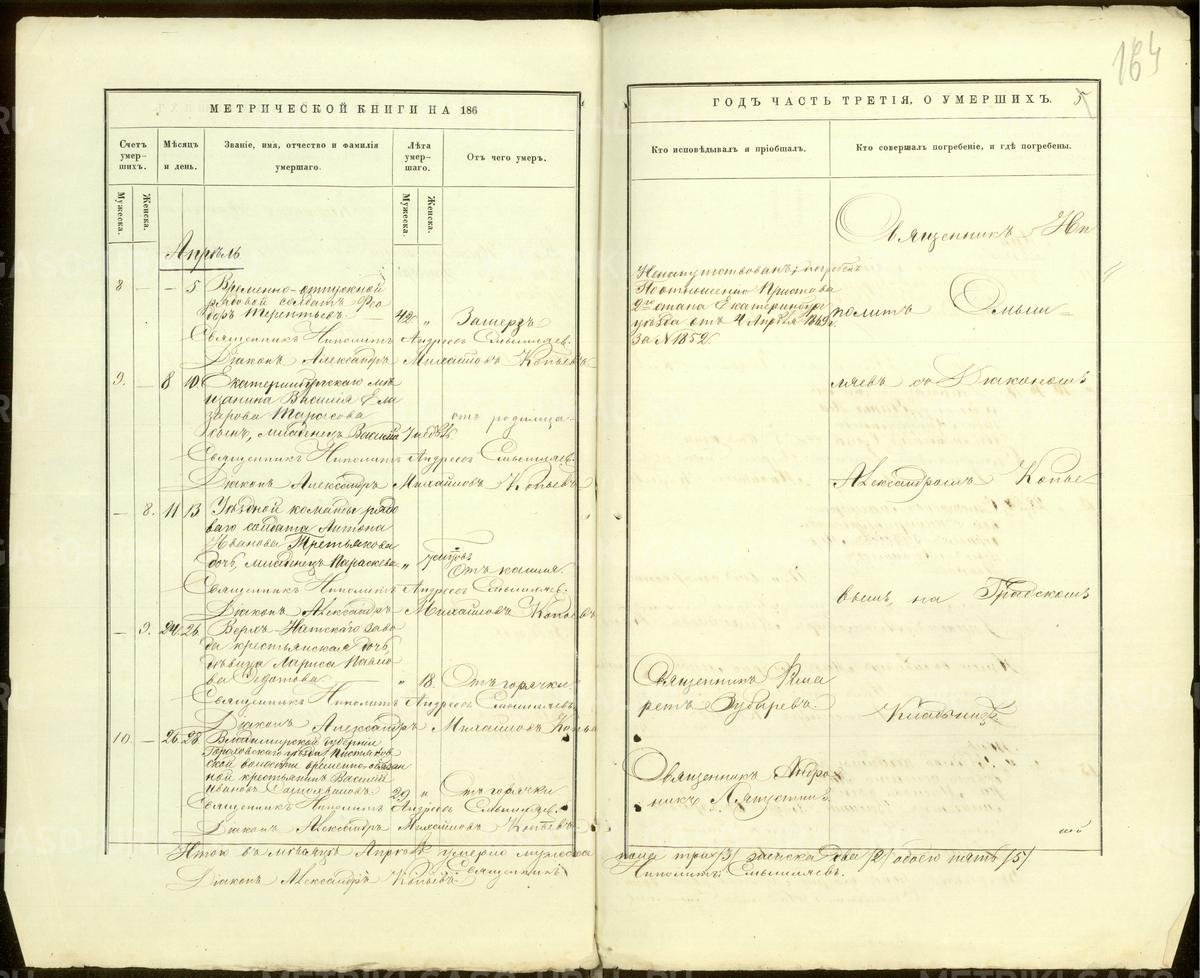 164
МЕТРИЧЕСКОЙ КНИГИ НА 186
Счетъ умер-шихъ.
Мѣсяцъ и день.
Званіе, имя, отчество и фамилія умершаго.
Лѣта умер-шаго.
Отъ чего умеръ.
Мужеска.
Женска.
Мужеска.
Женска.
Апрѣль
8 — — 5 Временно-отпускной
рядовой солдатъ Ѳео
доръ Терентьевъ — 42 „ Замерзъ
Священникъ Ипполитъ Андреевъ Смышляевъ.
Діаконъ Александръ Михайловъ Копьевъ
9. — 8 10. Екатеринбургскаго мѣ
щанина Василія Ела
зарова Тарасова отъ родимца
сынъ, младенецъ Василій 7 нед.
Священникъ Ипполитъ Андреевъ Смышляевъ.
Діаконъ Александръ Михайловъ Копьевъ
— 8. 11 13 Уѣздной команды рядо
ваго солдата Антона
Иванова Третьякова
дочь, младенецъ Параскева „ Отъ кашля.
Священникъ Ипполитъ Андреевъ Смышляевъ.
Діаконъ Александръ Михайловъ Копьевъ
— 9. 24 26 Верхъ-Исетскаго заво
да крестьянская дочь,
дѣвица Лариса Павло
ва Федотова — „ 18. Отъ горячки.
Священникъ Ипполитъ Андреевъ Смышляевъ
Діаконъ Александръ Михайловъ Копье
10. — 26 28 Владимірской губерніи
Гороховскаго уѣзда,
ской волости временно-обязан
ной крестьянинъ Василій
Ивановъ 29 „ Отъ горячки
Священникъ Ипполитъ Андреевъ Смышляевъ.
Діаконъ Александръ Михайловъ Копьевъ
Итого въ мѣсяцѣ Апрѣлѣ умерло мужеска
Діаконъ Александръ Копьевъ. Священникъ
ГОДЪ ЧАСТЬ ТРЕТІЯ, О УМЕРШИХЪ. 5
Кто исповѣдывалъ и пріобщалъ.
Кто совершалъ погребеніе, и гдѣ погребены.
Священникъ Ип
Ненапутствованъ; погребенъ
По отношенію Пристава
2го стана Екатеринбург
уѣзда отъ 4 Апрѣля 1865 г.
За № 1852.
политъ Смыш-
ляевъ съ Діакономъ
Александромъ Копье
вымъ, на Градскомъ
Священникъ Фила
ретъ Зубаревъ.
Кладбищѣ
Священникъ Андро
никъ
пола три /3/ женска два /2/ обоего пять /5/
Ипполитъ Смышляевъ.